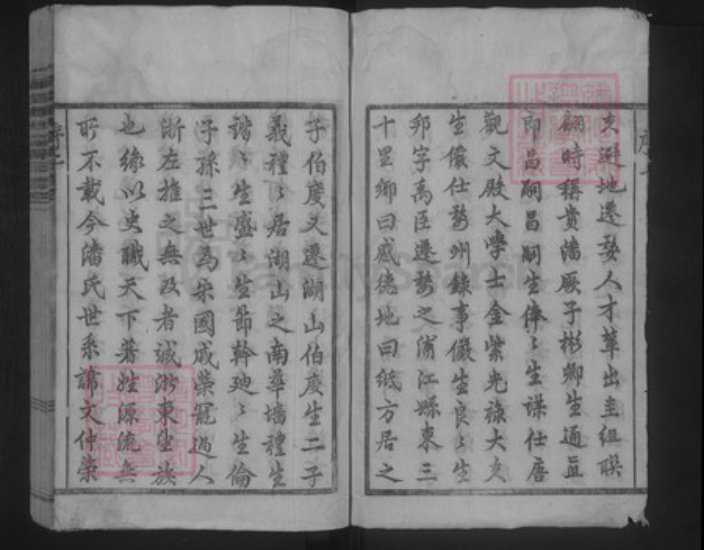 文避地遷婺人才輩出圭組聯
翩時稱貴潘厥子彬卿生通直
郎昌嗣昌嗣生俸〻生謀仕唐
觀文殿大學士金紫光祿大夫
生儼仕婺州錄事儼生良〻生
邦字禹臣遷婺之浦江縣東三
十里鄉曰感德地曰紙方居之
子伯度又遷湖山伯度生二子
義禮〻居湖山之南華墻禮生
諧〻生盛〻生節幹廸〻生倫
子孫三世為宋國戚榮冠過人
浙左推之無及者誠浙東望族
也緣以史職天下著姓源流無
所不載今潘氏世系譜文仲榮